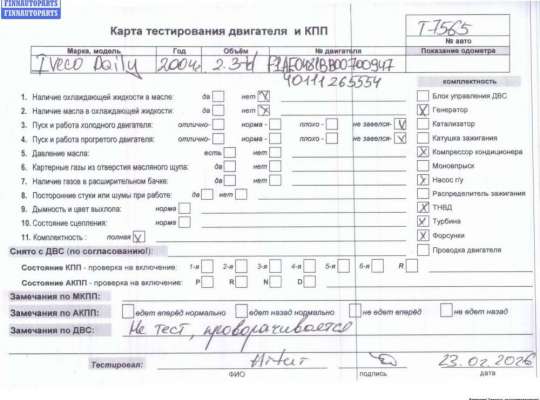 FINNAUTOPARTS
FINNAUTOPARTS
Карта тестирования двигателя и КПП
T-7565
№ авто
Марка, модель Год Объём № двигателя Показание одометра
Iveco Daily 2004г. 2.3td F1AE0481BB00700947
40111265554
комплектность
1. Наличие охлаждающей жидкости в масле: да нет X
2. Наличие масла в охлаждающей жидкости: да нет
3. Пуск и работа холодного двигателя: отлично- норма - плохо - не завелся- V
4. Пуск и работа прогретого двигателя: отлично- норма - плохо - не завелся- V
5. Давление масла: есть нет
6. Картерные газы из отверстия масляного щупа: да нет
7. Наличие газов в расширительном бачке: да нет
8. Посторонние стуки или шумы при работе: да нет
9. Дымность и цвет выхлопа: норма
10. Состояние сцепления: норма
11. Комплектность : полная V
Блок управления ДВС
X Генератор
Катализатор
Катушка зажигания
X Компрессор кондиционера
Моновпрыск
X Насос гу
Распределитель зажигания
X ТНВД
X Турбина
X Форсунки
Проводка двигателя
Снято с ДВС (по согласованию!):
Состояние КПП - проверка на включение: 1-я 2-я 3-я 4-я 5-я 6-я R
Состояние АКПП - проверка на включение: P R N D
Замечания по МКПП:
Замечания по АКПП: едет вперёд нормально едет назад нормально не едет вперёд не едет назад
Замечания по ДВС: Не тест, проворачивается
Тестировал: 23.02.2026
ФИО подпись дата